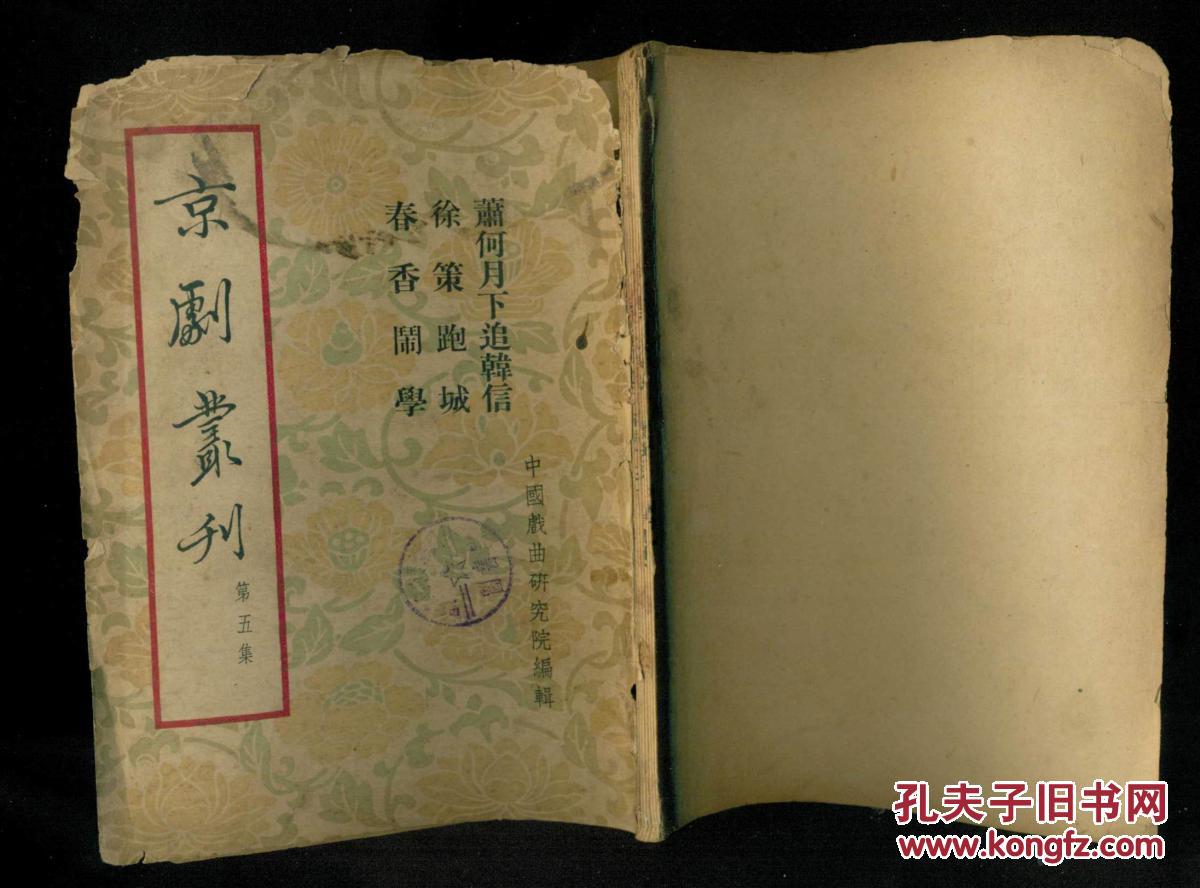 京劇叢刊
第五集
蕭何月下追韓信
徐策跑城
春香鬧學
中國戲曲研究院編輯
孔夫子旧书网
www.kongfz.com